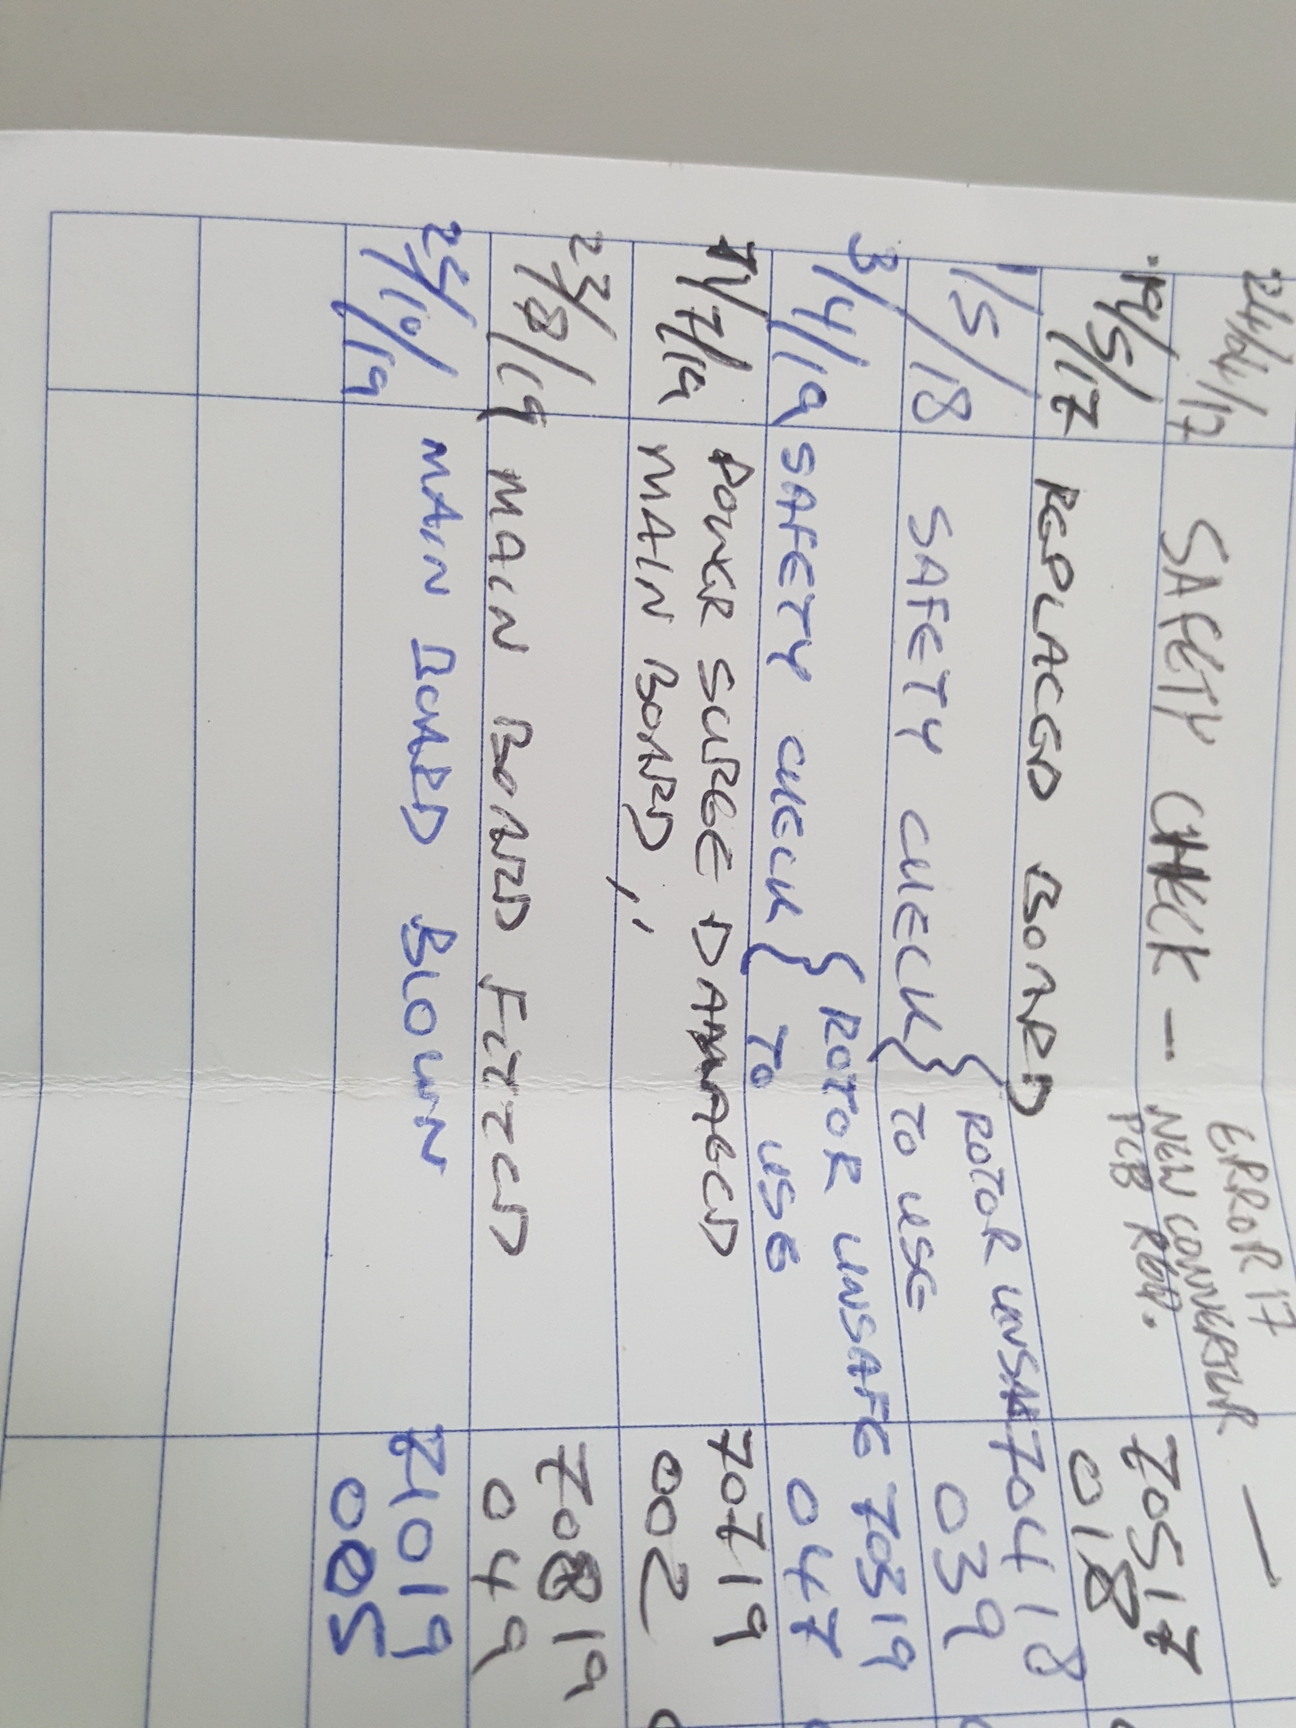 24/04/17 SAFETY CHECK - ERROR 17 —
NEW CONVERTUR
PCB REP.
19/5/17 REPLACED BOARD 70517
018
1/5/18 SAFETY CHECK { ROTOR UNSAFE 70418
TO USE 039
3/4/19 SAFETY CHECK { ROTOR UNSAFE 70319
TO USE 047
11/7/19 POWER SURGE DAMAGED 70719
MAIN BOARD,, 002
23/8/19 MAIN BOARD FITTED 70819
049
24/10/19 MAIN BOARD BLOWN 71019
005